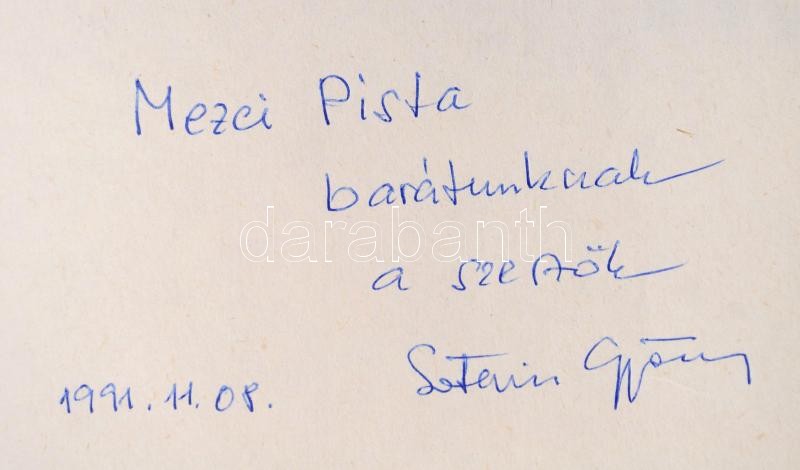 Mezei Pista
barátunknak
darabanth
a szerzők
György
1991. 11. 08.